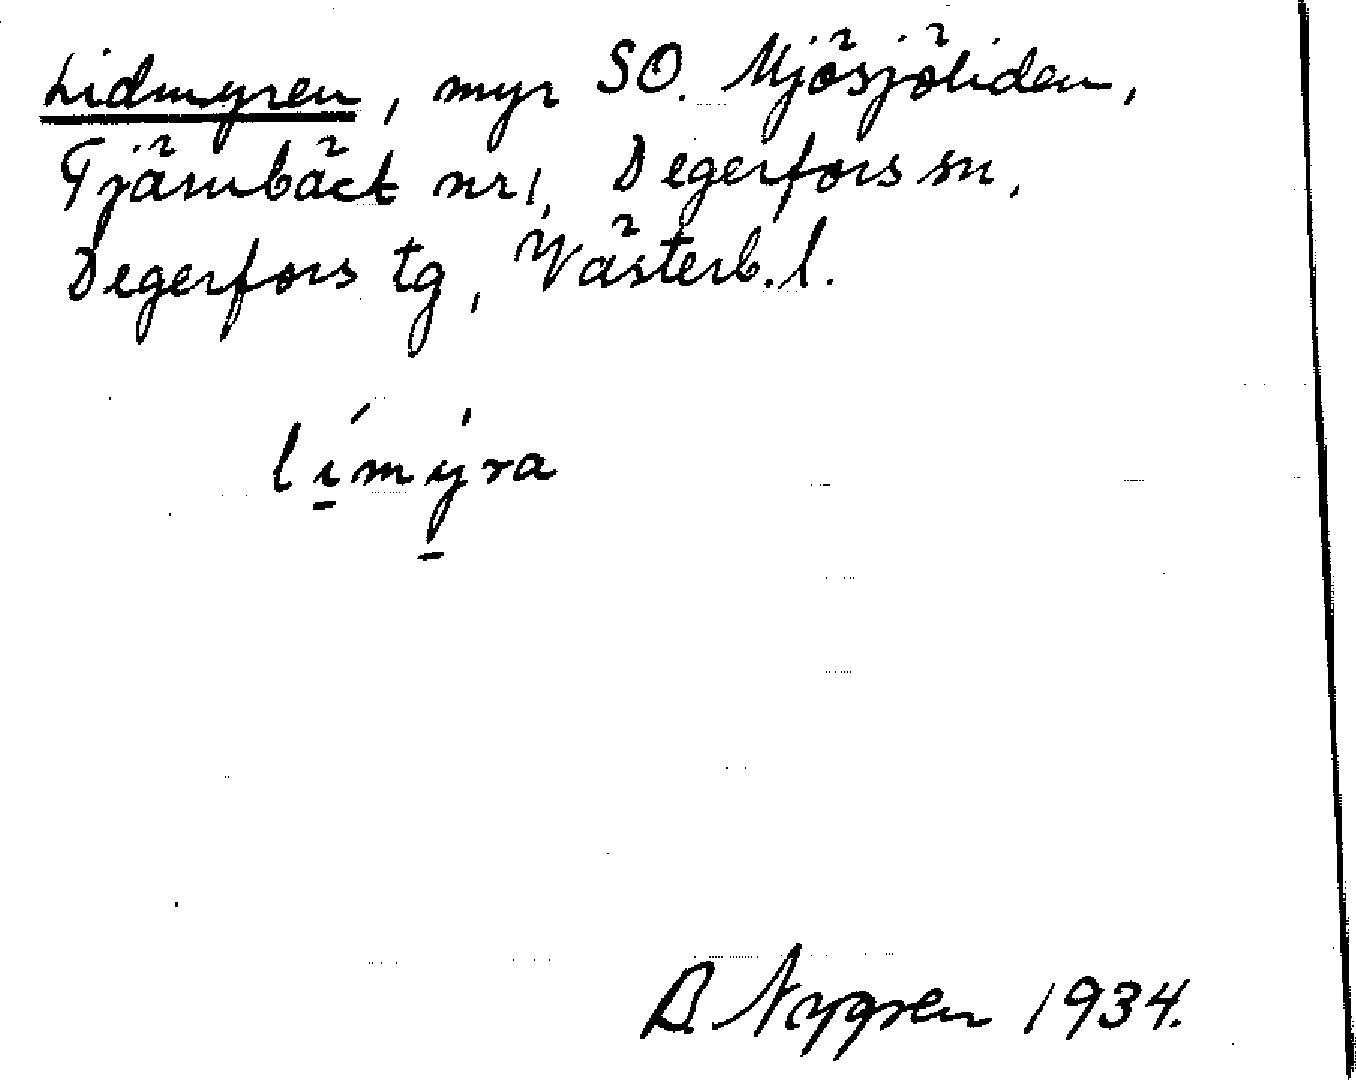 Lidmyren, myr SO. Mjösjöliden,
Tjärnbäck nr 1, Degerfors sn,
Degerfors tg, Västerb. l.
lı̱́mý̱ra
B. Nygren 1934.